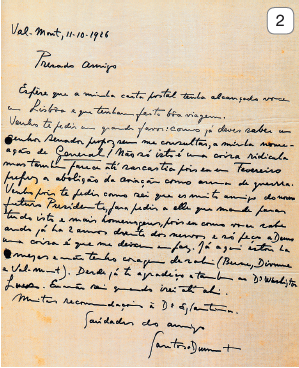 2
Val-Mont, 11-10-1926
Prezado Amigo
Espero que a minha carta postal tenha alcançado voce
em Lisboa e que tenham feito bôa viagem.
Venho te pedir um grande favor: Como já deves saber um
senhor Senador propoz, sem me consultar, a minha nome-
ação de General! Não só isto é uma coisa ridicula
mas tambem parece até sarcastico pois eu em Fevereiro
a abolição da aviação como arma de guerra.
Venho pois te pedir como sei que es muito amigo do nosso
futuro Presidente, para pedir a elle que mande parar
tudo isto e mais homenagens, pois eu como voce sabe
ando já ha 2 annos doente dos nervos e só peço a Deus
uma coisa é que me deixem em paz. Já aqui estou ha
mezes e não tenho coragem de sahir
a Val-mont). Desde já te agradeço e tambem ao Dr Washington
Luis. Eu não sei quando irei até ahi.
Muitas recommendações à Da
Saudades do amigo
Santos=Dumont